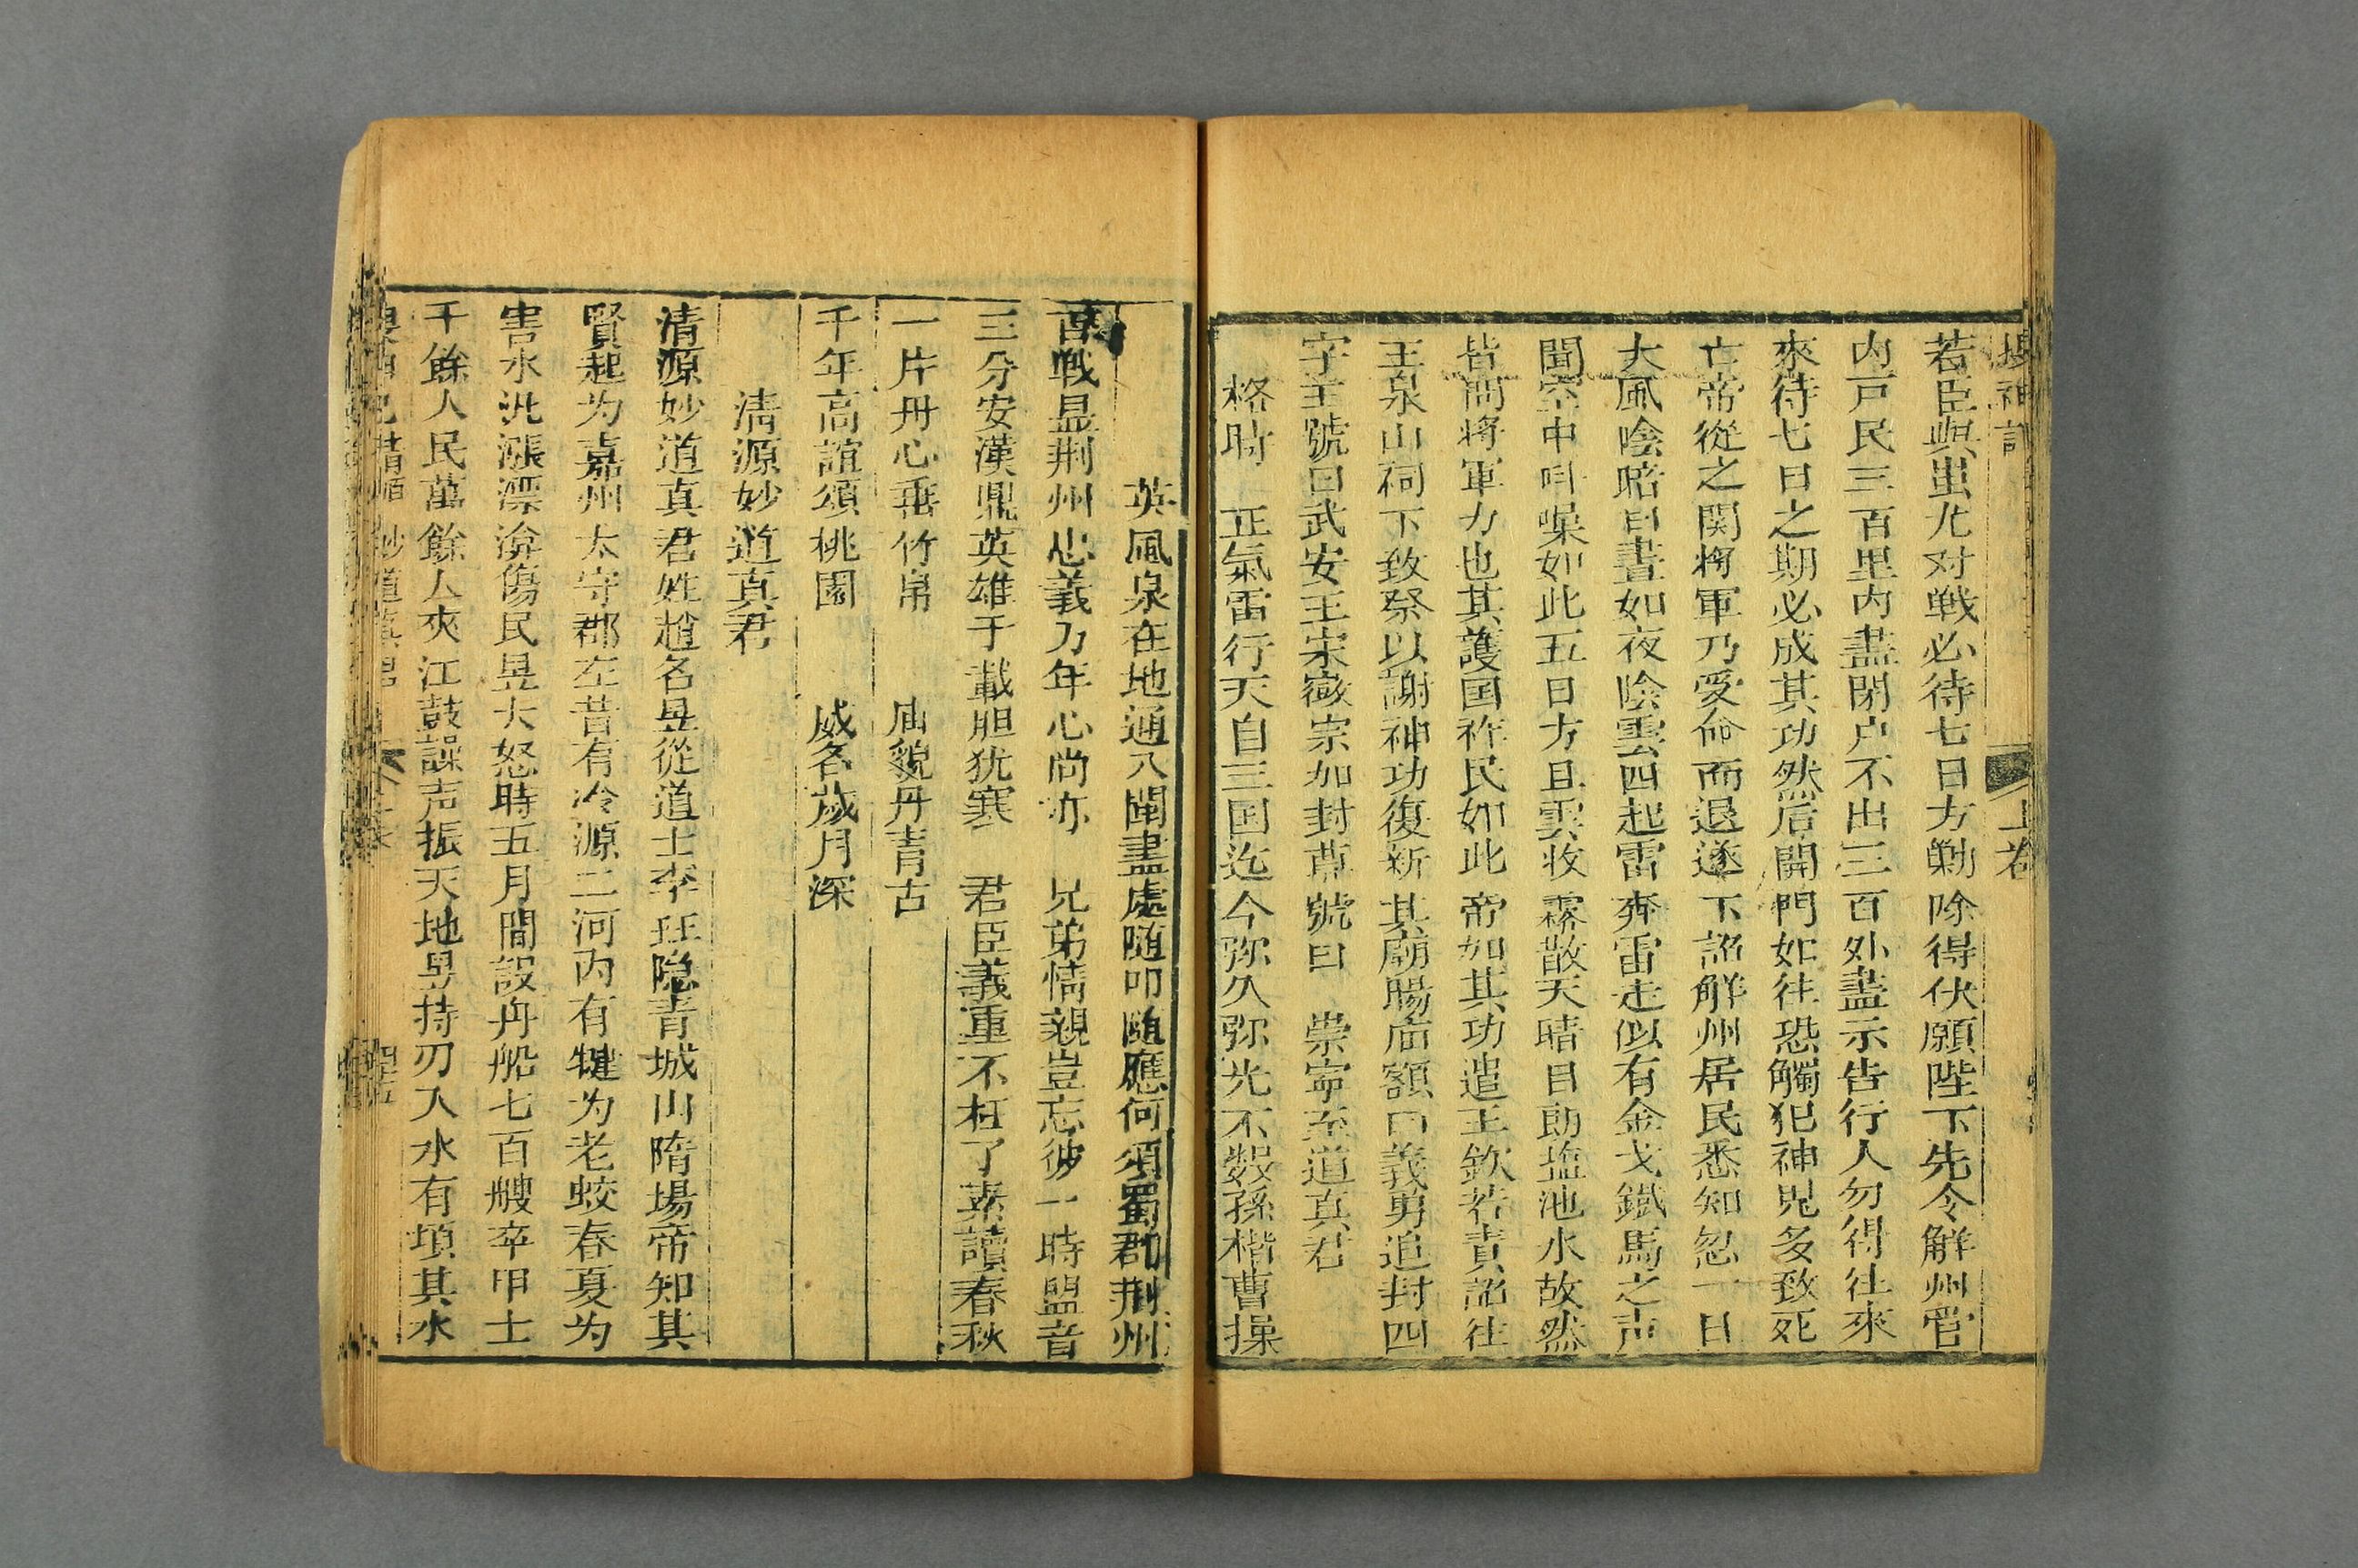 搜神記 上卷
若臣與蚩尤对戦必待七日方勦除得伏願陛下先令解州管
内戸民三百里内盡閉户不出三百外盡示告行人勿得往來
來待七日之期必成其功然后開門如往恐觸犯神鬼多致死
亡帝從之関將軍乃受命而退遂下詔解州居民悉知忽一日
大風陰暗白晝如夜陰雲四起雷奔雷走似有金戈鐵馬之声
聞空中叫噪如此五日方且雲收霧散天晴日朗塩池水故然
皆関将軍力也其護国祚民如此帝加其功遣王欽若賫詔往
玉泉山祠下致祭以謝神功復新其廟賜庙額曰義勇追封四
字王號曰武安王宋徽宗加封尊號曰 崇寧至道真君
格時 正氣雷行天自三国迄今弥久弥光不数孫権曹操
英風泉在地通八閩盡處随叩随應何須蜀郡荆州
百戦显荆州忠義乃年心尚亦 兄弟情親豈忘彼一時盟音
三分安漢鼎英雄千載胆犹寒 君臣義重不枉了素讀春秋
一片丹心垂竹帛 庙貌丹青古
千年高誼頌桃園 威名歲月深
清源妙道真君
清源妙道真君姓趙名昱從道士李珏隐青城山隋場帝知其
賢起为嘉州太守郡左昔有冷源二河内有犍为老蛟春夏为
害水汎漲漂渰傷民昱大怒時五月間設舟船七百艘卒甲士
千餘人民萬餘人夾江鼓譟声振天地昱持刃入水有項其水
妙道真君